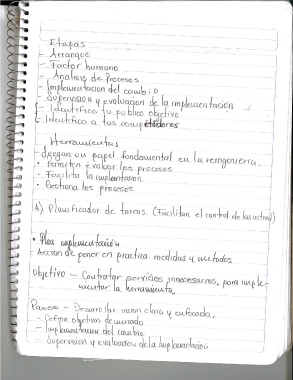 Etapas
- Arranque
- Factor humano
- Analisis de Procesos
- Implementacion del cambio
- Supervision y evaluacion de la implementación
- Identifica tu publico objetivo
- Identifica a tus competidores
Herramientas
- Juegan un papel fundamental en la reingenieria.
- Permiten evaluar los procesos
- Facilita la implantacion
- Gestiona los procesos
A) Planificador de tareas (Facilitan el control de las activ)
• Plan implementación
- Accion de poner en practica medidas y metodos
Objetivo - Contratar servicios innecesarios, para imple-
mentar la herramienta.
Pasos - Desarrollar vision clara y enfocada.
- Define objetivos de mercado
- Implementacion del cambio
- Supervision y evaluacion de la implementació